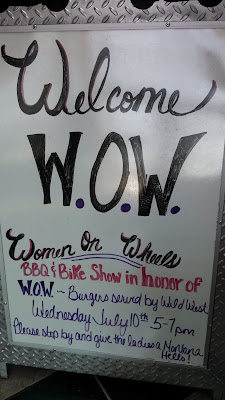 Welcome
W.O.W.
Women On Wheels
BBQ & Bike Show in honor of
W.O.W. ~ Burgers served by Wild West
Wednesday July 10th 5-7pm
Please stop by and give the ladies a Montana
Hello!